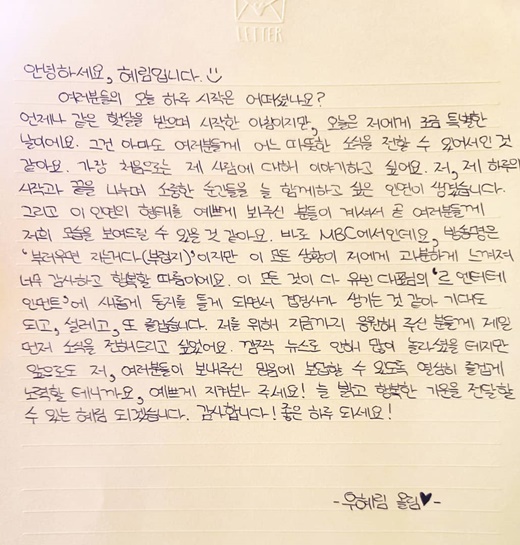 LETTER
안녕하세요, 혜림입니다. :)
여러분들의 오늘 하루 시작은 어떠셨나요?
언제나 같은 햇살을 받으며 시작한 아침이지만, 오늘은 저에게 조금 특별한
날이에요. 그건 아마도 여러분들께 어느 따뜻한 소식을 전할 수 있어서인 것
같아요. 가장 처음으로는 제 사랑에 대해 이야기하고 싶어요. 저, 제 하루의
시작과 끝을 나누며 소중한 순간들을 늘 함께하고 싶은 인연이 생겼습니다.
그리고 이 인연의 형태를 예쁘게 봐주신 분들이 계셔서 곧 여러분들께
저희 모습을 보여드릴 수 있을 것 같아요. 바로 MBC에서인데요, 방송명은
'부러우면 지는거다(부럽지)'이지만 이 모든 상황이 저에게 과분하게 느껴져
너무 감사하고 행복할 따름이에요. 이 모든 것이 다 유빈 대표님의 '르 엔터테
인먼트'에 새롭게 둥지를 틀게 되면서 겹경사가 생기는 것 같아 기대도
되고, 설레고, 또 즐겁습니다. 저를 위해 지금까지 응원해 주신 분들께 제일
먼저 소식을 전해드리고 싶었어요. 깜짝 뉴스로 인해 많이 놀라셨을 테지만
앞으로도 저, 여러분들이 보내주신 믿음에 보답할 수 있도록 열심히 즐겁게
노력할 테니까요, 예쁘게 지켜봐 주세요! 늘 밝고 행복한 기운을 전달할
수 있는 혜림 되겠습니다. 감사합니다! 좋은 하루 되세요!
-우혜림 올림♥-